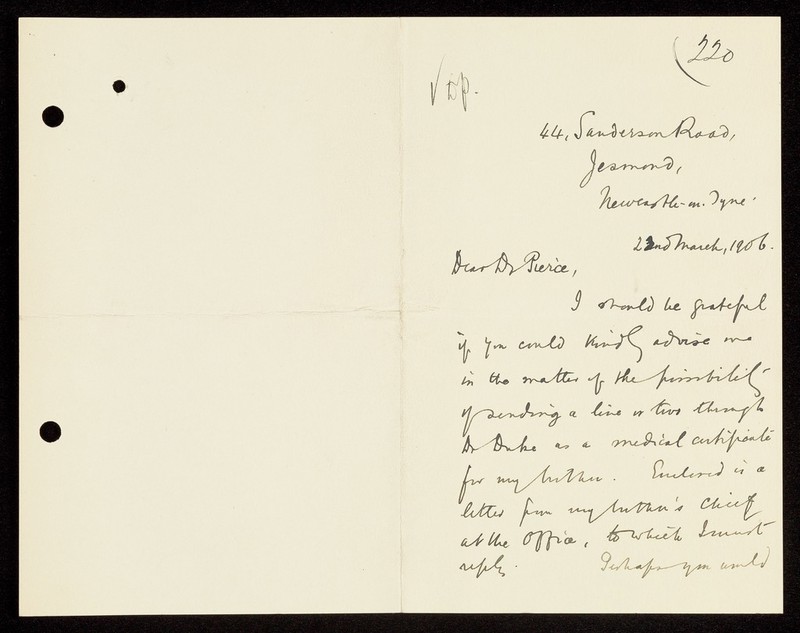 220
44, Sanderson Road,
Jesmond,
Newcastle-on-Tyne.
22nd March, 1906.
Dear Dr Pierce,
I should be grateful
if you could kindly advise me
in the matter of the possibility
of sending a line or two through
Dr Duke as a medical certificate
for my brother. Enclosed is a
letter from my brother's Chief
at the Office, to which I must
reply. Perhaps you would